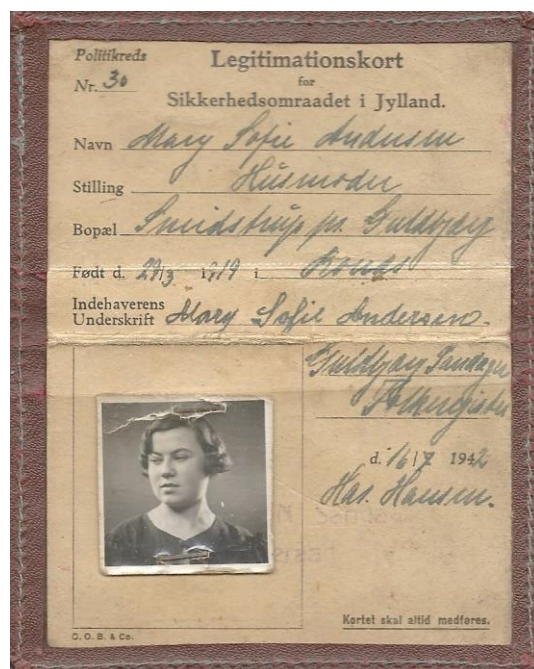 Politikreds
Nr. 30
Legitimationskort
for
Sikkerhedsomraadet i Jylland.
Navn Mary Sofie Andersen
Stilling Husmoder
Bopæl Smidstrup pr. Guldbjerg
Født d. 29/3 1919 i
Indehaverens
Underskrift Mary Sofie Andersen.
Guldbjerg
Folkeregister
d. 16/7 1942
Has. Hansen.
Kortet skal altid medføres.
C. O. B. & Co.